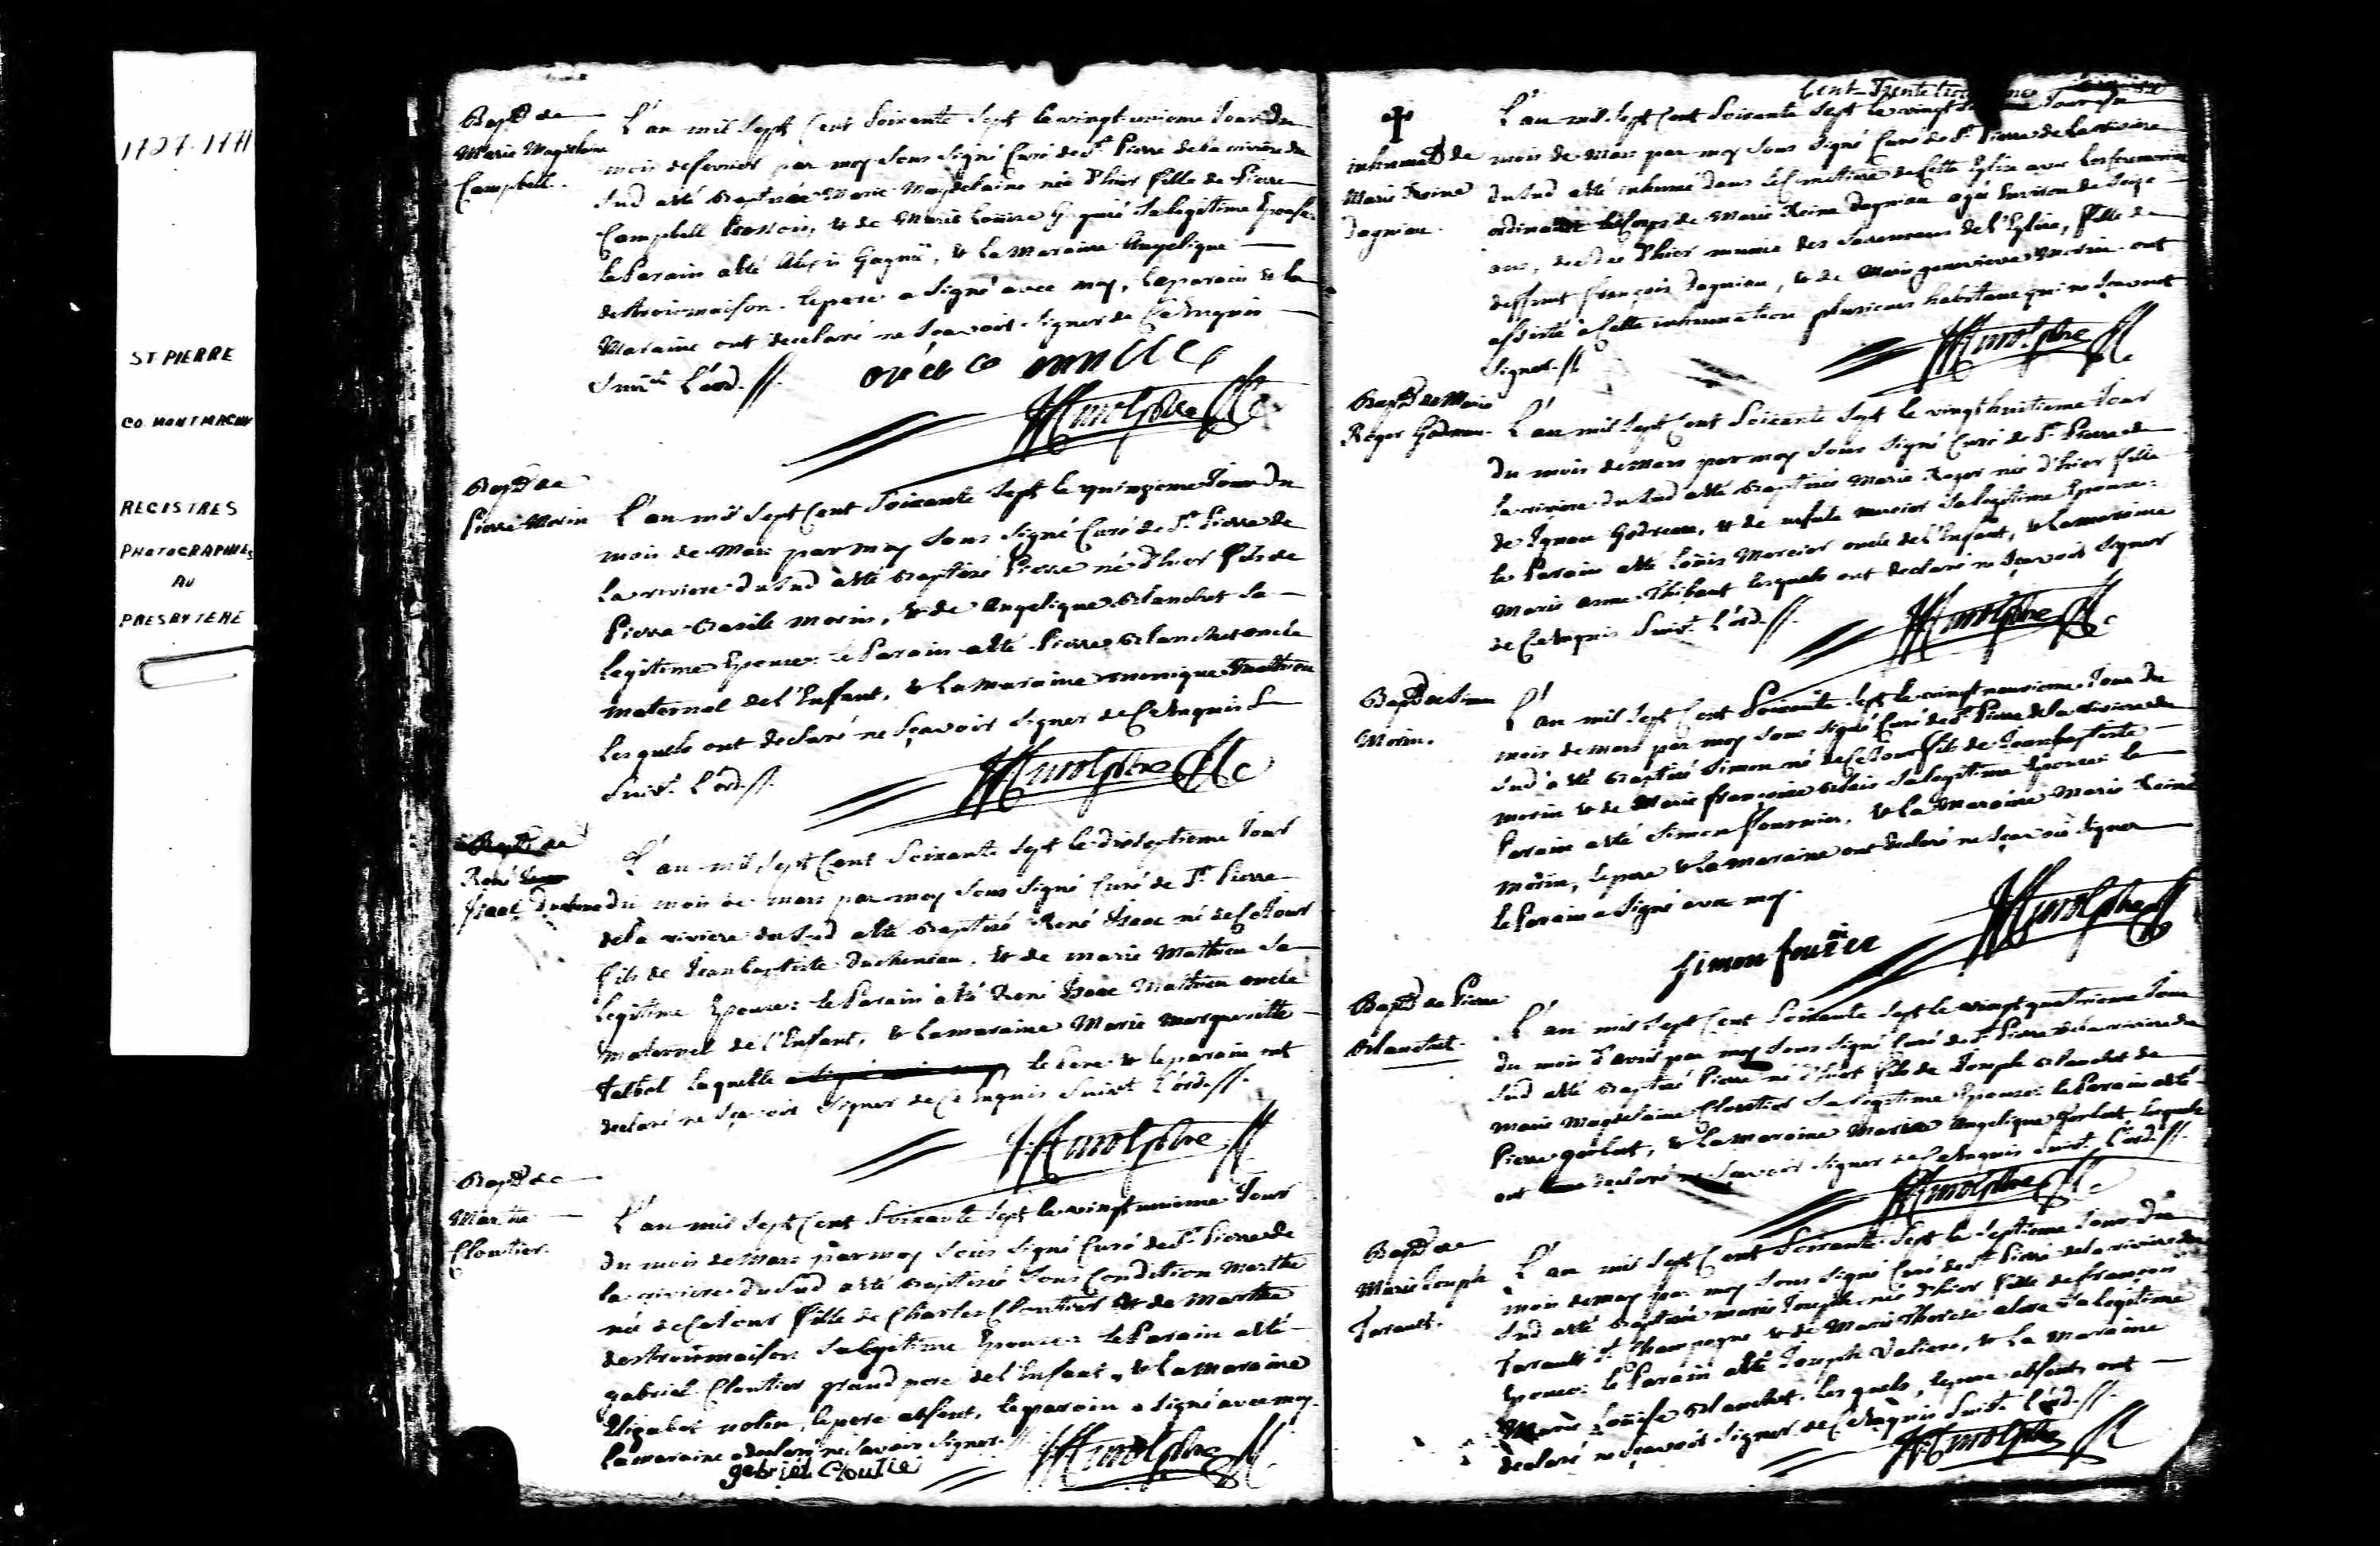 1727-1771
ST PIERRE
CO. MONTMAGNY
REGISTRES
PHOTOGRAPHIES
AU
PRESBYTERE
Bapt de
Marie Magdelaine
Campbell.
L'an mil Sept Cent Soixante Sept le vingt unieme Jour du
mois de fevrier par moy Sous Signé Curé de St Pierre de la riviere du
Sud a été Baptisée Marie Magdelaine née d'hier fille de Pierre
Campbell & de Marie Louise Sa legitime Epouse
le Parain a été Alexis Gagné, & la Maraine Angelique
destroismaison. le pere a Signé avec moy, le parain & la
Maraine ont declaré ne Sçavoir Signer de Ce Enquis
Suivt L'ord.
Bapt de
Pierre Morin
L'an mil Sept Cent Soixante Sept le quinzieme Jour du
mois de Mars par moy Sous Signé Curé de St Pierre de
la riviere du Sud a été Baptisé Pierre né d'hier fils de
Pierre Basile Morin, & de Angelique Blanchet Sa
legitime Epouse: le Parain a été Pierre Blanchet oncle
maternel de l'Enfant, & la Maraine monique Mathieu
lesquels ont declaré ne Sçavoir Signer de Ce Enquis
Suivt L'ord.
Bapt de
René
Isaac
L'an mil Sept Cent Soixante Sept le dixseptieme Jour
du mois de mars par moy Sous Signé Curé de St Pierre
de la riviere du Sud a été Baptisé René Isaac né de Ce Jour
fils de Jean baptiste Duchesneau, & de marie Mathieu Sa
Legitime Epouse: le Parain a été René Isaac Mathieu oncle
Maternel de l'Enfant, & la maraine Marie Marguerite
Talbot laquelle a Signé avec moy, le Pere & le parain ont
declaré ne Sçavoir Signer de Ce Enquis Suivt L'ord.
Bapt de
Marthe
Cloutier.
L'an mil Sept Cent Soixante Sept le vingt unieme Jour
du mois de Mars par moy Sous Signé Curé de St Pierre de
la riviere du Sud a été Baptisée Sous Condition Marthe
née de Ce Jour fille de Charles Cloutier & de Marthe
destroismaison Sa legitime Epouse: le Parain a été
gabriel Cloutier grand pere de l'Enfant, & la Maraine
Elizabet nolin, le pere absent, le parain a Signé avec moy.
La maraine a declaré ne Savoir Signer.
gabriel Cloutie
Cent Trente
inhumat de
Marie Reine
Dagniau.
L'an mil Sept Cent Soixante Sept le vingt Jour du
mois de Mars par moy Sous Signé Curé de St Pierre de la riviere
du Sud a été inhumé dans le Cimetiere de Cette Eglise avec les Ceremonies
ordinaires le Corps de Marie Reine Dagniau agée Environ de Seize
ans, decedée d'hier munie des Sacremens de l'Eglise, fille de
deffunt François Dagniau, & de Marie genevieve Morin. ont
assisté a Cette inhumation plusieurs habitans qui ne Sçavent
Signer.
Bapt de Marie
Roger Godreau.
L'an mil Sept Cent Soixante Sept le vingt huitieme Jour
du mois de Mars par moy Sous Signé Curé de St Pierre de
la riviere du Sud a été Baptisée Marie Roger née d'hier fille
de Ignace Godreau, & de mercier Sa legitime Epouse:
le Parain a été Loüis Mercier oncle de l'Enfant, & la maraine
Marie anne Thibaut lesquels ont declaré ne Sçavoir Signer
de Ce Enquis Suivt L'ord.
Bapt de Simon
Morin.
L'an mil Sept Cent Soixante Sept le vingt neuvieme Jour du
mois de mars par moy Sous Signé Curé de St Pierre de la riviere du
Sud a été Baptisé Simon né de Ce Jour fils de Jean baptiste
morin & de Marie françoise Blais Sa legitime Epouse: le
Parain a été Simon fournier, & la Maraine Marie Reine
Morin, le pere & la maraine ont declaré ne Sçavoir Signer
le Parain a Signé avec moy.
Simon
Bapt de Pierre
Blanchet.
L'an mil Sept Cent Soixante Sept le vingt quatrieme Jour
du mois d'avril par moy Sous Signé Curé de St Pierre de la riviere du
Sud a été Baptisé Pierre né d'hier fils de Joseph Blanchet & de
Marie Magdelaine Cloutier Sa legitime Epouse: le Parain a été
Pierre & la Maraine Marie Angelique lesquels
ont declaré ne Sçavoir Signer de Ce Enquis Suivt L'ord.
Bapt de
Marie Joseph
Tarault.
L'an mil Sept Cent Soixante Sept le Septieme Jour du
mois de may par moy Sous Signé Curé de St Pierre de la riviere du
Sud a été Baptisée marie Joseph née d'hier fille de françois
Tarault dt Champagne & de Marie Therese Sa legitime
Epouse: le Parain a été Joseph & la Maraine
Marie Loüise Blanchet. lesquels, le pere absent, ont
declaré ne Sçavoir Signer de Ce Enquis Suivt L'ord.